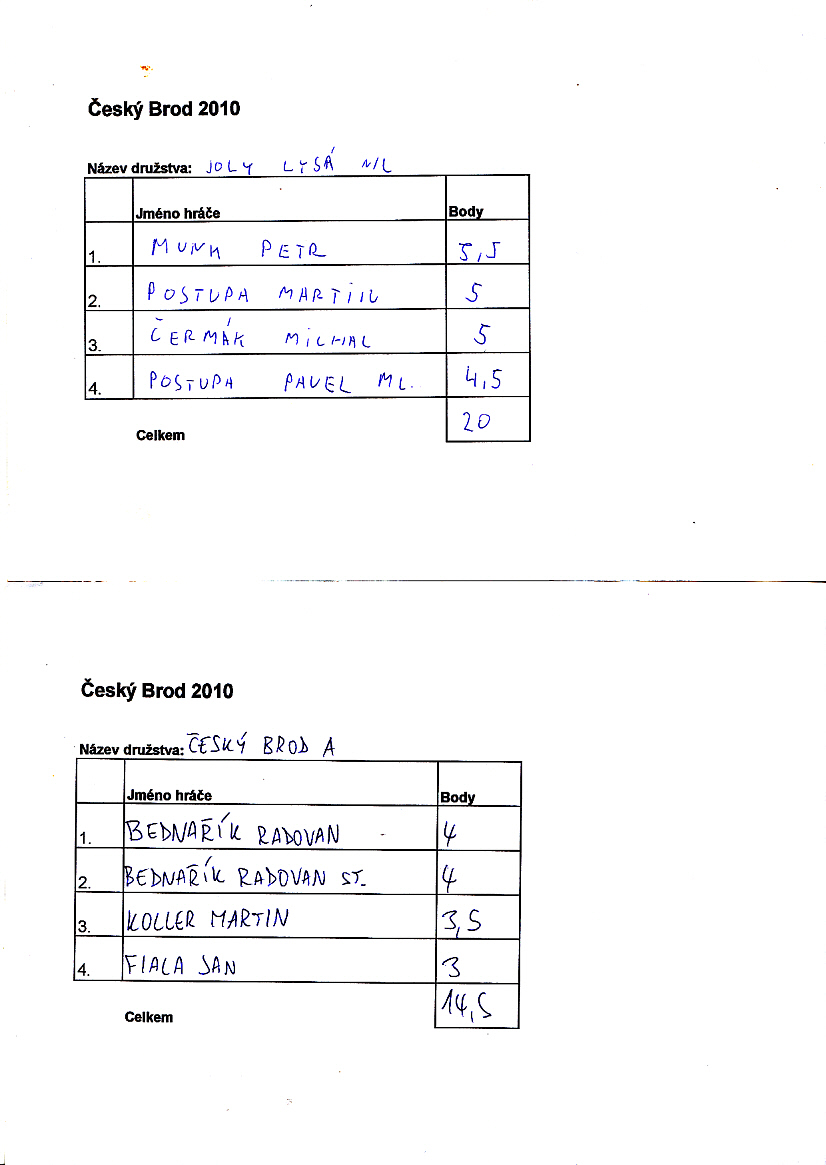 Český Brod 2010
Název družstva: JOLY LYSÁ N/L
Jméno hráče Body
1. MUNK PETR 5,5
2. POSTUPA MARTIN 5
3. ČERMÁK MICHAL 5
4. POSTUPA PAVEL ML. 4,5
Celkem 20
Český Brod 2010
Název družstva: ČESKÝ BROD A
Jméno hráče Body
1. BEDNAŘÍK RADOVAN - 4
2. BEDNAŘÍK RADOVAN ST. 4
3. KOLLER MARTIN 3,5
4. FIALA JAN 3
Celkem 14,5